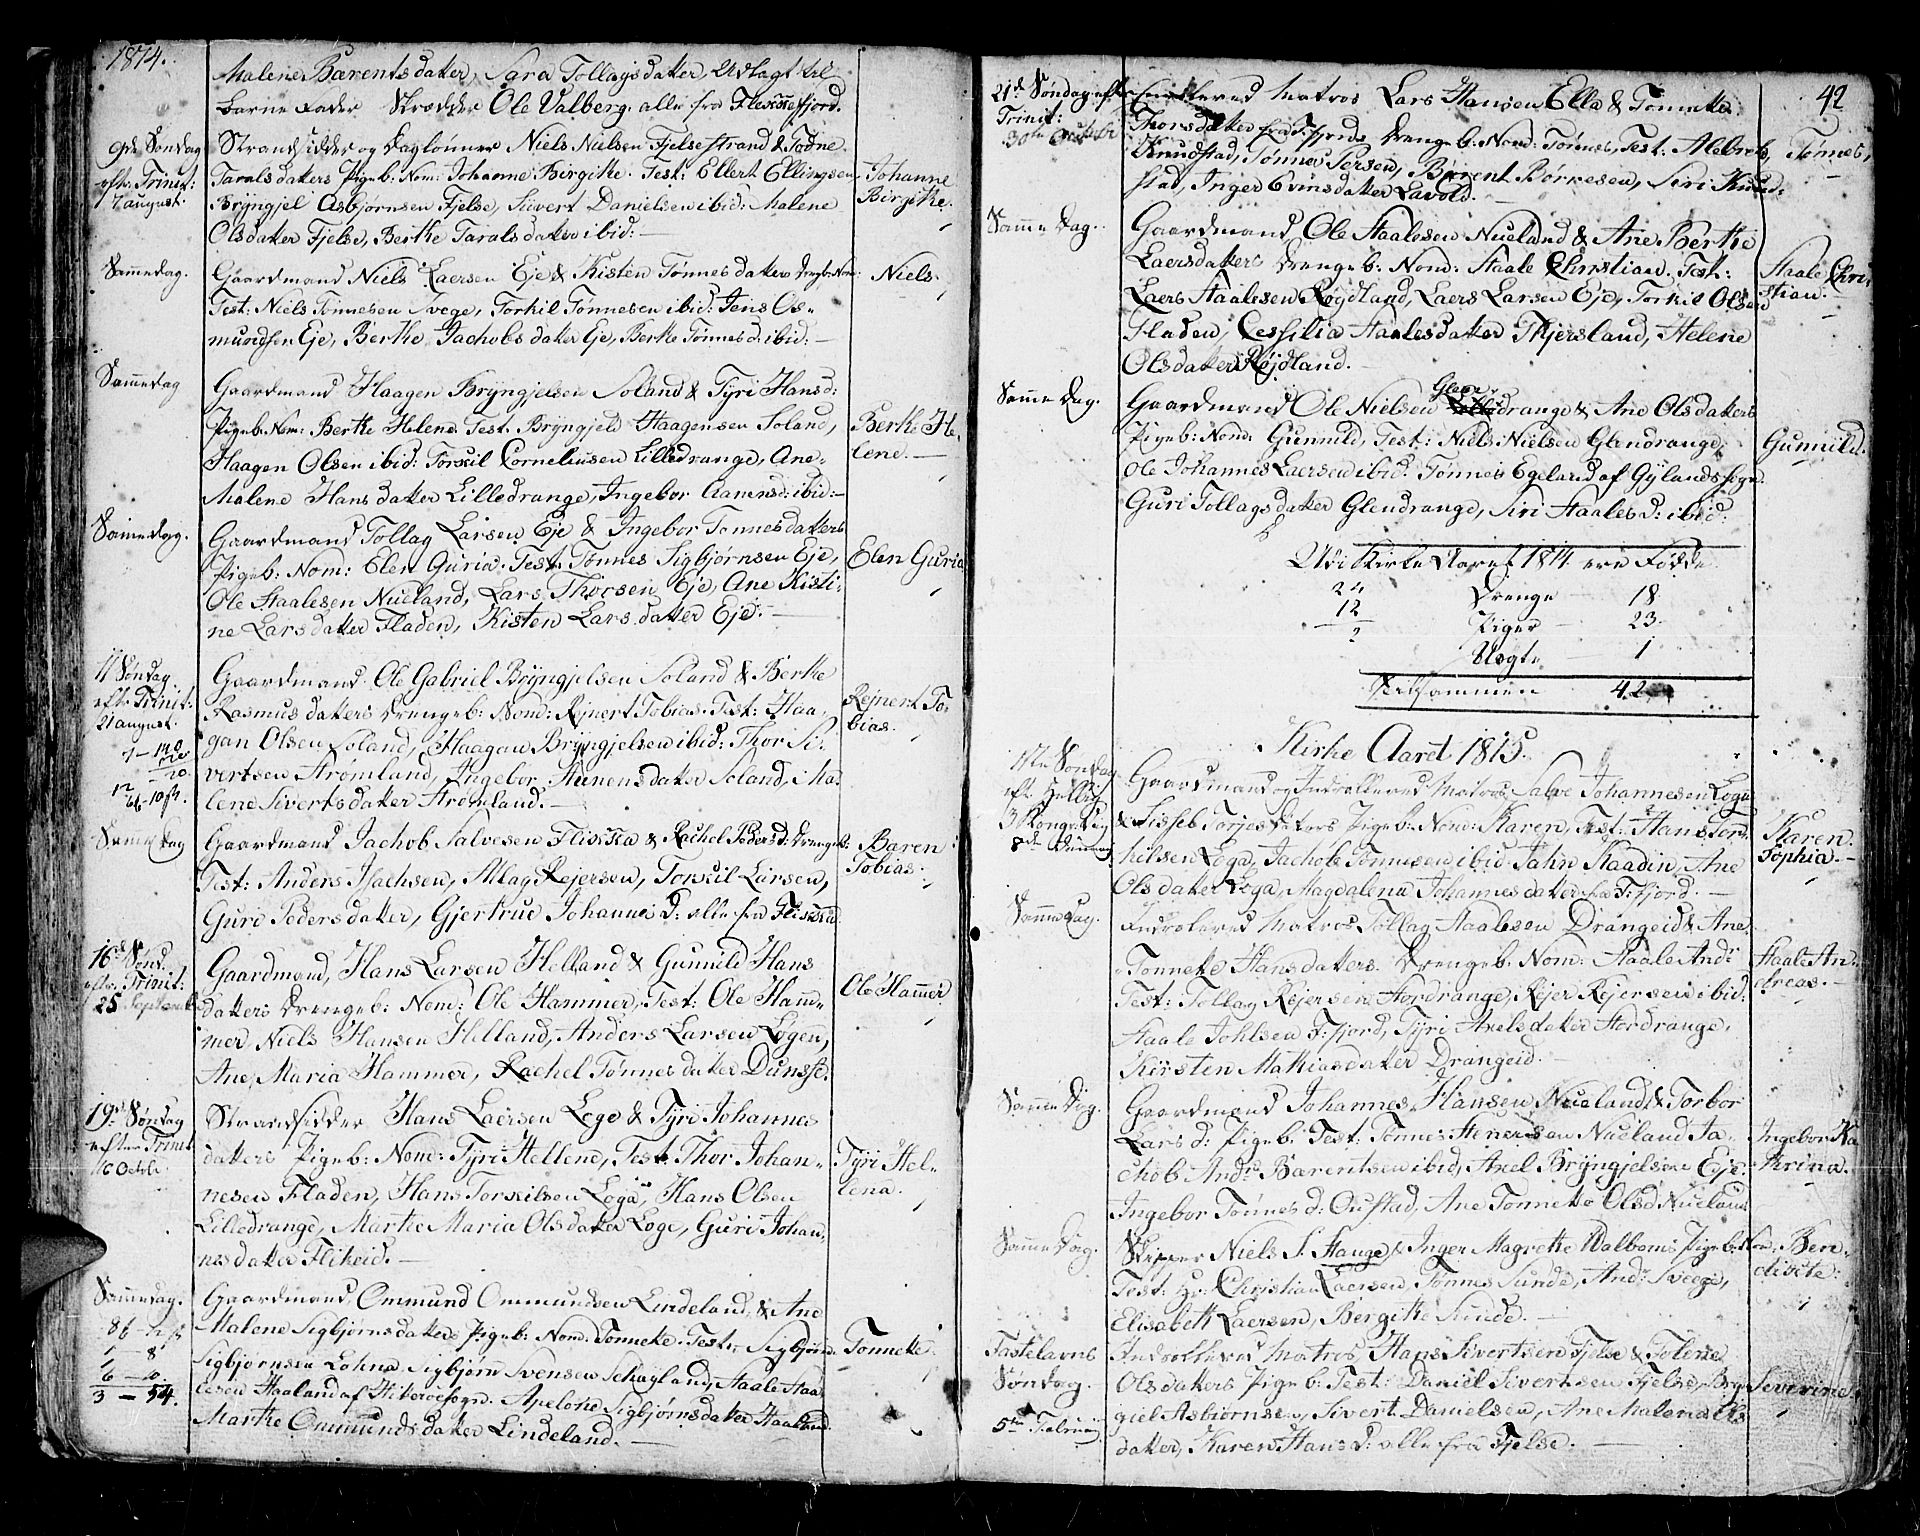 1814.
Malene Bærentsdatter, Sara Tollagsdatter, Udlagt til
Barne Fader Skrædder Ole Valberg. alle fra Flekkefjord.
9de Søndag
efter Trinit:
7 august.
Strandsidder og Daglønner Niels Nielsen Fjelsestrand & Todne
Taralsdatters Pigeb: Nom: Johanne Birgithe. Test: Ellert Ellingsen
Bryngjel Asbjørnsen Fjelse, Sivert Danielsen ibid: Malene
Olsdatter Fjelse, Berthe Taralsdatter ibid:
Johanne
Birgithe.
Samme dag.
Gaardmand Niels Laersen Eje & Kisten Tønnesdatters Drengeb: Nom:
Test: Niels Tønnesen Svege, Torkil Tønnesen ibid: Jens Os-
mundsen Eje, Berthe Jachobsdatter Eje, Berte Tønnesd: ibid:
Niels.
Samme dag
Gaardmand Haagen Bryngjelsen Soland & Tyri Hansd:
Pigeb: Nom: Berthe Helene. Test. Bryngjeld Haagensen Soland,
Haagen Olsen ibid: Torkil Corneliusen Lilledrange, Ane-
Malene Hansdatter Lilledrange, Ingebor ibid:
Berthe He-
lene.
Samme dag.
Gaardmand Tollag Larsen Eje & Ingebor Tønnesdatters
Pigeb: Nom: Elen Guria. Test. Tønnes Sigbjørnsen Eje,
Ole Staalesen Nueland, Lars Thorsen Eje, Ane Kisti-
ne Larsdatter Fladen, Kisten Larsdatter Eje.
Elen Guria
11 Søndag
eftr Trinit:
21 august.
Gaardmand Ole Gabriel Bryngjelsen Soland & Berthe
Rasmusdatters Drengeb: Nom: Rejnert Tobias. Test: Haa-
gan Olsen Soland, Haagan Bryngjelsen ibid: Thor Si-
vertsen Strømland, Ingebor datter Soland, Ma-
lene Sivertsdatter Strømland.
Rejnert To-
bias.
Samme dag
Gaardmand Jachob Salvesen Flikka & Rachel Pedersd: Drengeb:
Test: Anders Isachsen, Atlag Rejersen, Torkil Larsen,
Guri Pedersdatter, Gjertrue Johannesd: alle fra Flikka
Baren
Tobias.
16de Sønd.
eftr. Trinit:
25 Septemb
Gaardmand, Hans Larsen Helland & Gunnild Hans
datters Drengeb: Nom: Ole Hammer, Test: Ole Ham-
mer, Niels Hansen Helland, Anders Larsen Løgen,
Ane Maria Hammer, Rachel Tønnesdatter Dunsse.
Ole Hammer
19de Søndag
efter Trinit
16 Octb:
Strandsidder Hans Laersen Loge & Tyri Johannes
datters Pigeb: Nom: Tyri Hellene, Test. Thor Johan-
nesen Fladen, Hans Torkilsen Loga, Hans Olsen
Lilledrange, Marthe Maria Olsdatter Loge, Guri Johan-
nesdatter Flikeid.
Tyri Hel-
lena.
Samme dag.
Gaardmand Ommund Ommundsen Lindeland, & Ane
Malene Sigbjørnsdatters Pigeb: Nom: Tonneke. Test: Sigbjørn
Sigbjørnsen Lohna, Sigbjørn Svensen Schagland, Staale Staa-
lesen Haaland af Hiterøe Sogn. Apelone Sigbjørnsdatter Haaland
Marthe Ommundsdatter Lindeland.
Tonneke.
3 — 54.
42
21de Søndag eftr
Trinit:
30te Octobr
Enrolered Matros Lars Hansen Ella & Tonneke
Thorsdatter fra F:fjords Drengeb: Nom: Tønnes, Test: Alebret
Knudstad, Tønnes Persen, Bærent Børresen, Siri Knud-
stad, Inger Evinsdatter Lavold.
Tønnes,
Samme Dag.
Gaardmand, Ole Staalesen Nueland & Ane Berthe
Laersdatters Drengeb: Nom: Staale Christian. Test:
Laers Staalesen Røydland, Laers Larsen Eje, Torkil Olsen
Fladen, Cessilia Staalesdatter Thjersland, Helene
Olsdatter Røjdland.
Staale Chri-
stian.
Samme Dag.
Gaardmand Ole Nielsen Glendrange & Ane Olsdatters
Pigeb: Nom: Gunnild, Test: Niels Nielsen Glendrange,
Ole Johannes Laersen ibid: Tønnes Egeland af Gylands Sogn
Guri Tollagsdatter Glendrange, Siri Staalesd: ibid:
Gunnild.
Udi Kirke Aaret 1814 ere Fødde
24 Drenge — 18
12 Piger — 23
Uægte — 1
Tilsammen 42
Kirke Aaret 1815.
Gaardmand og Indrollered Matros Salve Johannesen Loga
& Sisseb Torjesdatters Pigeb: Nom: Karen, Test: Hans Tor-
kilsen Loga, Jachob Tønnesen ibid. Jahn Raadin, Ane
Olsdatter Loga, Magdalena Johannesdatter fra F:fjord.
Karen
Sophia.
Samme Dag.
Indrolered Matros Tollag Staalesen Drangeid & Ane
Tonneke Hansdatters. Drengeb: Nom: Staale Andr
Test: Tollag Rejersen Stordrange, Rejer Rejersen ibid:
Staale Johlsen F:fjord, Tyri Axelsdatter Stordrange.
Kirsten Mathiasdatter Drangeid.
Staale An-
dreas.
Samme Dag.
Gaardmand Johannes Hansen Nueland & Torbor
Larsd: Pigeb: Test: Tønnes Henersen Nueland Ja-
chob Andr: Bærentsen ibid, Axel Bryngjelsen Eje
Ingebor Tønnesd: Oustad, Ane Tonneke Olsd Nueland
Ingebor Ka
thrina.
Samme Dag.
Skipper Niels S. Hauge & Inger Magrethe Walboms Pigeb:
Test: Hr: Christian Laersen, Tønnes Sunde, Andr Svege,
Elisabeth Laersen, Bergithe Sunde.
Ben-
dicte:
Fastelavns
Søndag.
5te Februarij
Indrollered Matros Hans Sivertsen Fjelse & Tolene
Olsdatters Pigeb: Test: Daniel Sivertsen Fjelse, Bryn
giel Asbiørnsen, Sivert Danielsen, Ane Malena Ols
datter, Karen Hansd: alle fra Fjelse.
Severine